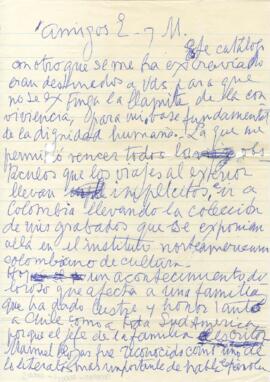 Amigos E - y M.
Este catálogo
con otro que se me ha extraviado
eran destinados a Vds. para que
no se extinga la llamita de la con
vivencia, para mi, base fundamental
de la dignidad humana. La que me
permitió vencer todos los obs
táculos que los viajes al exterior
llevan implícitos, ir a
Colombia llevando la colección
de mis grabados que se exponían
allá en el instituto norteamericano
colombiano de cultura.
un acontecimiento do
loroso que afecta a una familia
que ha dado lustre y honor tanto
a Chile como a toda Sud América
porque el jefe de la familia escritor
Manuel Rojas fue reconocido como uno de
los literatos más importante de habla española